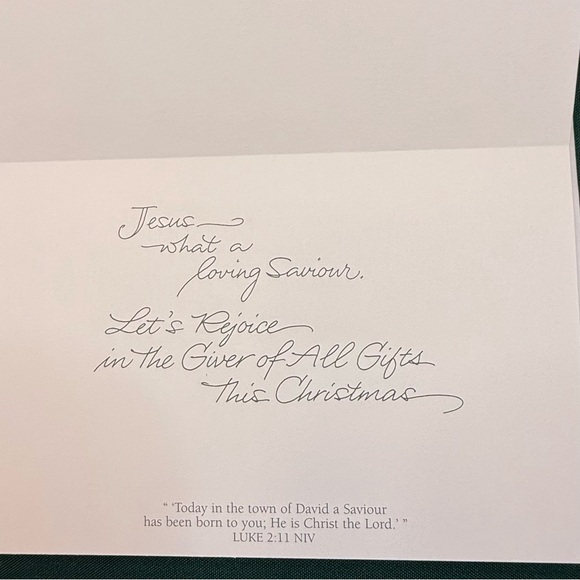 Jesus
what a
loving Saviour.
Let's Rejoice
in the Giver of All Gifts
This Christmas
“ ‘Today in the town of David a Saviour
has been born to you; He is Christ the Lord.’ ”
LUKE 2:11 NIV